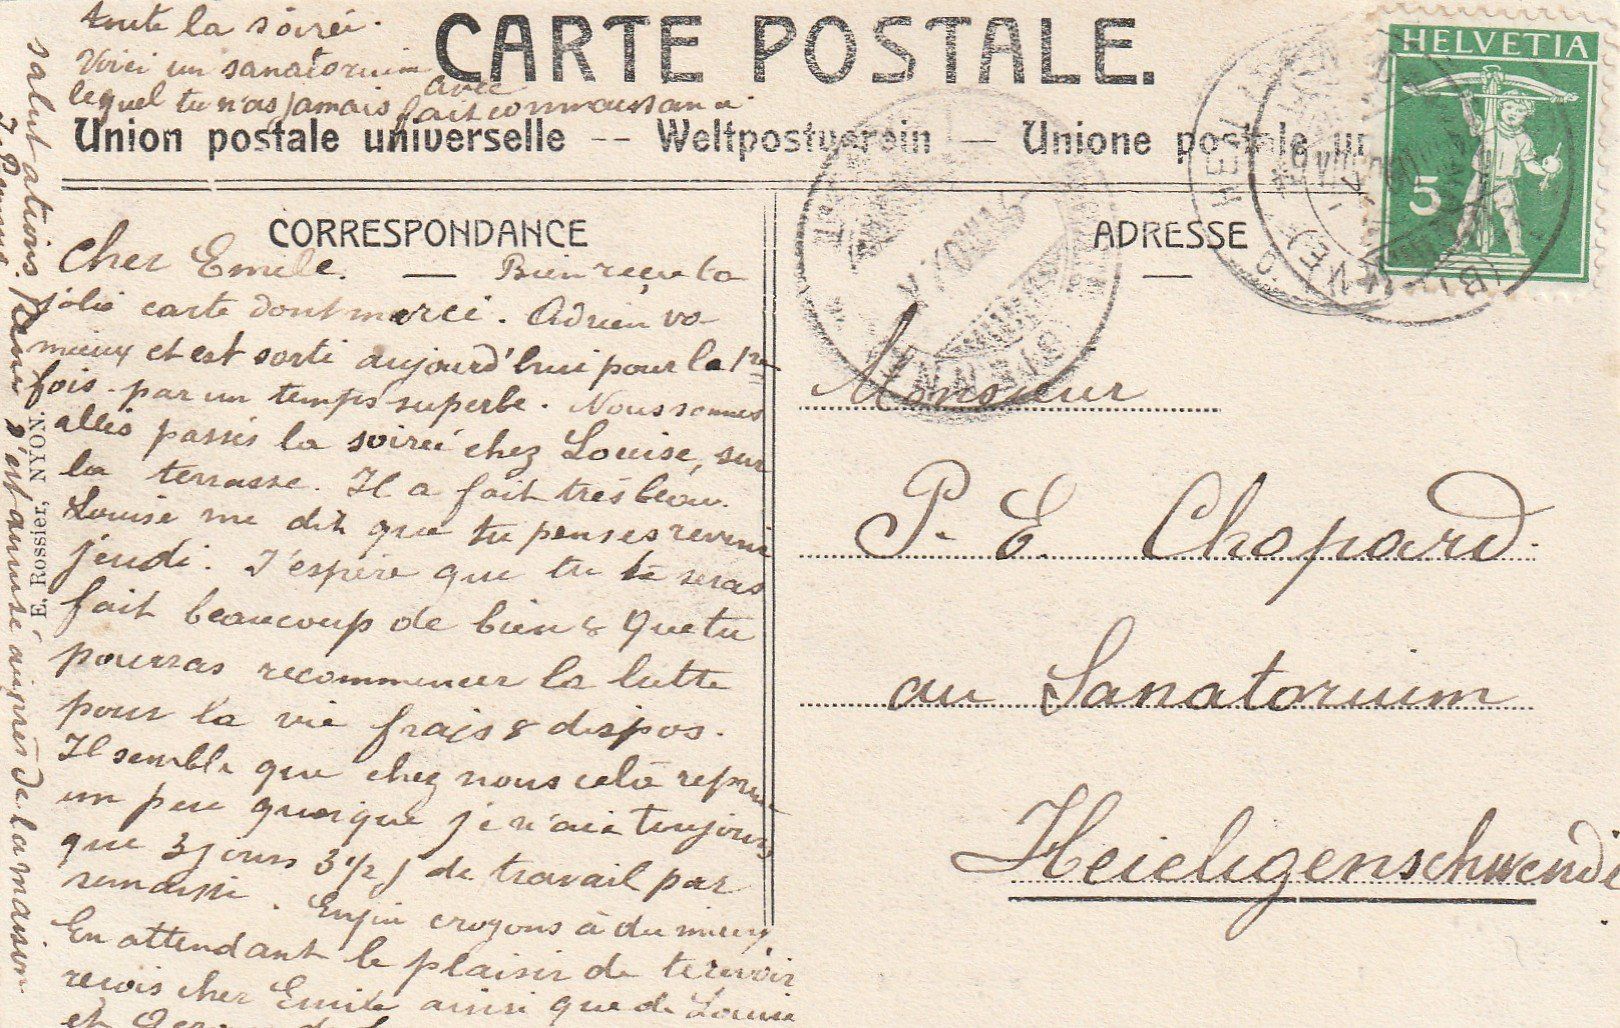 toute la soirée.
Voici un sanatorium
avec
lequel tu n'as jamais fait connaissance.
CARTE POSTALE.
Union postale universelle -- Weltpostverein -- Unione postale un
HELVETIA
5
CORRESPONDANCE
ADRESSE
Cher Emile. — Bien reçu ta
jolie carte dont merci. Adrien va
mieux et est sorti aujourd'hui pour la 1re
fois par un temps superbe. Nous sommes
allés passés la soireé chez Louise, sur
la terrasse. Il a fait très beau.
Louise me dit que tu penses revenir
jeudi. J'espère que tu te seras
fait beaucoup de bien & que tu
pourras recommencer la lutte
pour la vie frais & dispos.
Il semble que chez nous celà reprend
un peu quoique je n'aie toujours
que 3 jours 3 1/2 j de travail par
semaine. Enfin croyons à du mieux
En attendant le plaisir de te revoir
reçois cher Emile ainsi que de Louise
et
salutations.
s'est amusé auprès de la maison
E. Rossier, NYON.
Monsieur
P. E. Chopard.
au Sanatorium
Heieligenschwendi